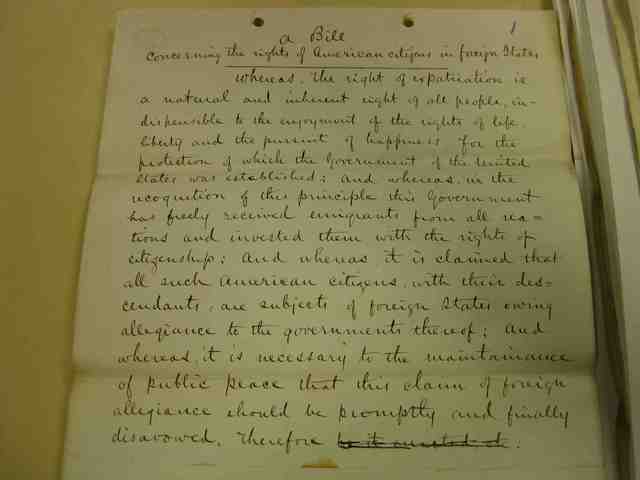 1
A Bill
Concerning the rights of American citizens in foreign States
Whereas, the right of expatriation is
a natural and inherent right of all people, in-
dispensible to the enjoyment of the rights of life,
liberty and the pursuit of happiness for the
protection of which the Government of the United
States was established; and whereas, in the
recognition of this principle this Government
has freely received emigrants from all na=
tions and invested them with the rights of
citizenship; And whereas it is claimed that
all such American citizens, with their des=
cendants, are subjects of foreign States owing
allegiance to the governments thereof; And
whereas, it is necessary to the maintainance
of public peace that this claim of foreign
allegiance should be promptly and finally
disavowed, Therefore be it enacted